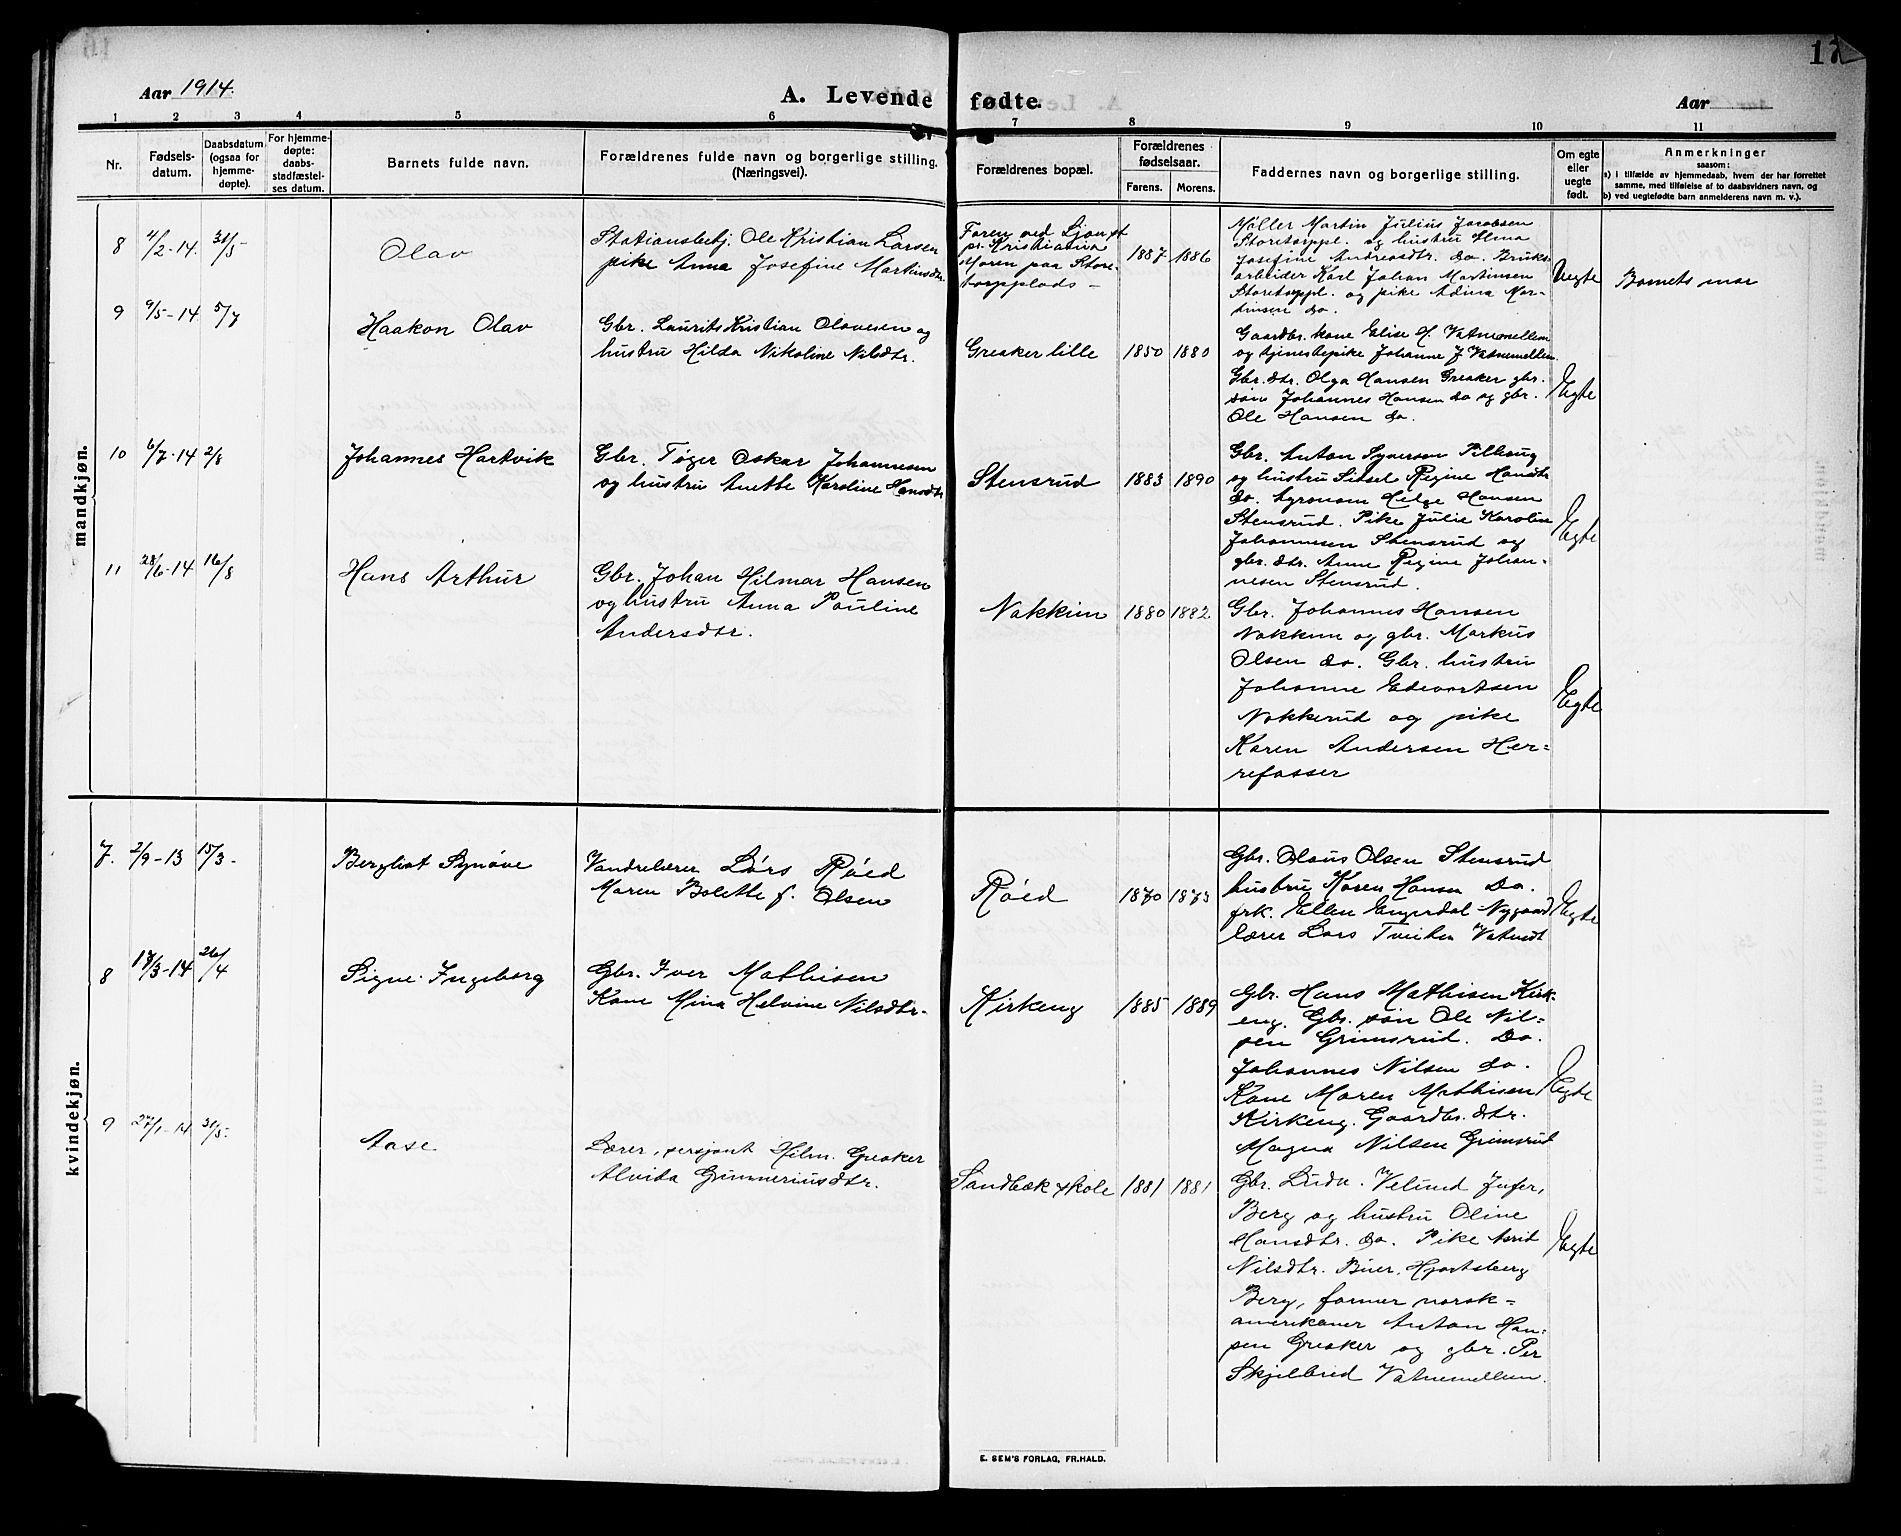 Aar 1914.
A. Levende fødte.
Aar
17
1 2 3 4 5 6 7 8 9 10 11
Nr.
Fødsels-
datum.
Daabsdatum
(ogsaa for
hjemme-
døpte).
For hjemme-
døpte:
daabs-
stadfæstel-
ses datum.
Barnets fulde navn.
Forældrenes fulde navn og borgerlige stilling.
(Næringsvei).
Forældrenes bopæl.
Forældrenes
fødselsaar.
Farens. Morens.
Faddernes navn og borgerlige stilling.
Om egte
eller
uegte
født.
Anmerkninger
saasom:
a) i tilfælde av hjemmedaab, hvem der har forrettet
samme, med tilføielse af to daabsvidners navn, og
b) ved uegtefødte barn anmelderens navn m. v.).
mandkjøn.
8 4/2-14. 31/5
Olav
Stationsbetj. Ole Kristian Larsen
pike Anna Josefine Martinsdtr.
Faren ved Ljan st
pr. Kristiania
Moren paa Store-
torpplads -
1887 1886
Møller Martin Julius Jacobsen
Storetorppl. og hustru Elma
Josefine Andreasdtr. do. Bruks-
arbeider Karl Johan Martinsen
Storetorppl. og pike Adina Mar-
tinsen do.
Uegte
Barnets mor
9 9/5-14 5/7
Haakon Olav
Gbr. Laurits Kristian Olavesen og
hustru Hilda Nikoline Nilsdtr.
Greaker lille
1850 1880
Gaardbr. kone Elise H. Vatnemellem
og tjenestepike Johanne J. Vatnemellem.
Gbr. dtr. Olga Hansen Greaker gbr.
søn Johannes Hansen do og gbr.
Ole Hansen do.
Egte
10 6/7-14 2/8
Johannes Hartvik
Gbr. Tøger Oskar Johannesen
og hustru Anette Karoline Hansdtr
Stensrud
1883 1890
Gbr. Anton Syversen Pilbaug
og hustru Sidsel Regine Hansdtr
do. Agronom Helge Hansen
Stensrud. Pike Julie Karoline
Johannesen Stensrud og
gbr. dtr. Anne Regine Johan-
nesen Stensrud.
Egte
11 28/6-14 16/8
Hans Arthur
Gbr. Johan Hilmar Hansen
og hustru Anna Pauline
Andersdtr.
Nokkim
1880 1882
Gbr. Johannes Hansen
Nokkum og gbr. Markus
Olsen do. Gbr. hustru
Johanne Edvartsen
Nokkerud og pike
Karen Andersen Her-
refosser
Egte
kvindekjøn.
7. 2/9-13 15/3-
Bergliot Synøve
Vandrelærer Lars Røed
Maren Bolette f. Olsen
Røed
1870 1873
Gbr. Olaus Olsen Stensrud
hustru Karen Hansen Do.
frk. Ellen Engerdal Nygaard
lærer Lars Tveiten Vatvedt
Egte
8 18/3-14 26/4
Signe Ingeborg
Gbr. Iver Mathisen
Kone Mina Helvine Nilsdtr.
Kirkeng
1885 1889
Gbr. Hans Mathisen Kirk-
eng. Gbr. søn Ole Nil-
sen Grimsrud. Do.
Johannes Nilsen do.
Kone Maren Mathisen
Kirkeng. Gaardbr. dtr.
Magna Nilsen Grimsrud
Egte
9 27/1-14 31/5.
Aase
Lærer, sersjant Hilm. Greaker
Alvida Grimmeriusdtr.
Sandbæk skole
1881 1881
Gbr. Ludv. Velund Jufer,
Berg og hustru Oline
Hansdtr. do. Pike Astrid
Nilsdtr. Buer, Hjortsberg
Berg, farmer norsk-
amerikaner Anton Han-
sen Greaker og gbr. Per
Skjelbred Vatnemellem.
Egte
E. SEM'S FORLAG, FR.HALD.